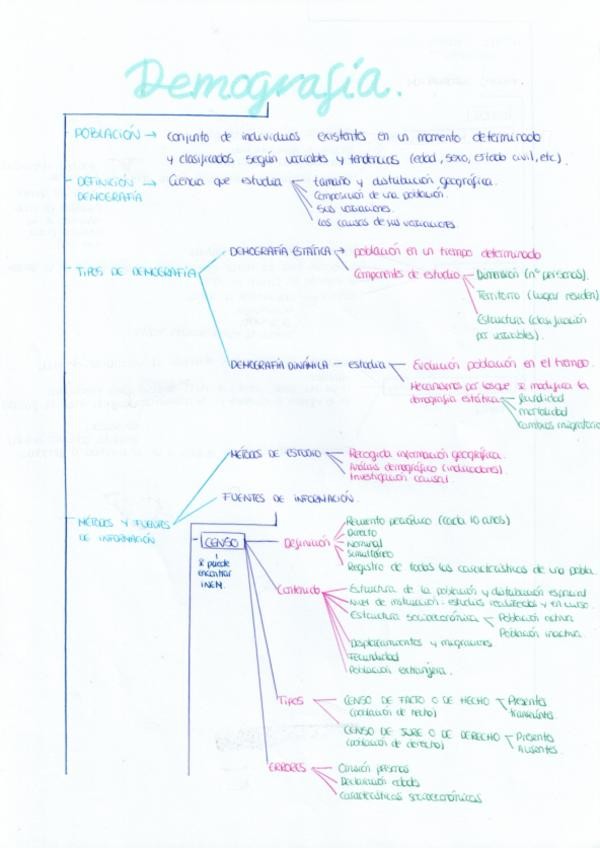 Demografía.
POBLACIÓN → conjunto de individuos existentes en un momento determinado
y clasificados según variables y tendencias (edad, sexo, estado civil, etc).
DEFINICIÓN → Ciencia que estudia
DEMOGRAFÍA
tamaño y distribución geográfica.
Composición de una población.
Sus variaciones.
Las causas de sus variaciones.
TIPOS DE DEMOGRAFÍA
DEMOGRAFÍA ESTÁTICA → población en un tiempo determinado
Componentes de estudio
Dimensión (nº personas).
Territorio (lugar residen)
Estructura (clasificación
por variables).
DEMOGRAFÍA DINÁMICA – estudia
Evolución población en el tiempo.
Mecanismos por los que se modifica la
demografía estática
fecundidad
mortalidad
Cambios migratorio
MÉTODOS Y FUENTES
DE INFORMACIÓN
MÉTODOS DE ESTUDIO
Recogida información geográfica.
Análisis demográfico (indicadores).
Investigación causal
FUENTES DE INFORMACIÓN.
CENSO
se puede
encontrar
INEM.
Definición
Recuento periódico (cada 10 años)
Directo
Nominal
Simultáneo
Registro de todas las características de una pobla.
Contenido
Estructura de la población y distribución espacial
Nivel de instrucción - estudios realizados y en curso.
Estructura socioeconómica
Población activa
Población inactiva.
Desplazamientos y migraciones
Fecundidad
Población extranjera.
TIPOS
CENSO DE FACTO O DE HECHO
(población de hecho)
Presentes
transeúntes
CENSO DE JURE O DE DERECHO
(población de derecho)
Presentes
Ausentes.
ERRORES
Omisión personas
Declaración edades
Características socioeconómicas